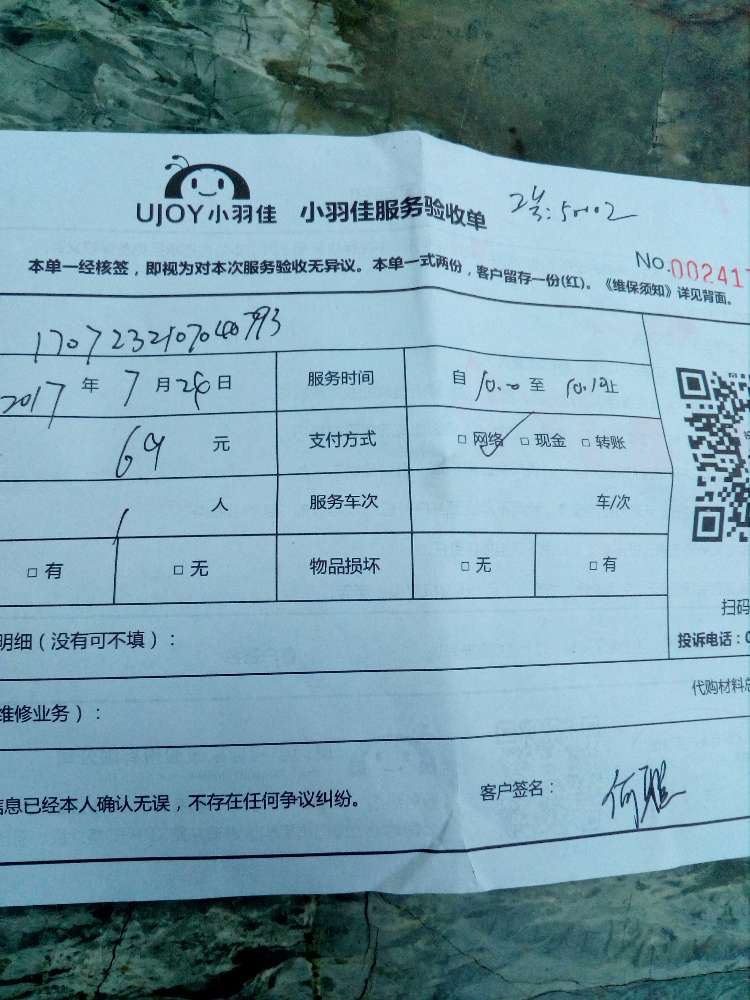 UJOY小羽佳 小羽佳服务验收单
No.002417
本单一经核签，即视为对本次服务验收无异议。本单一式两份，客户留存一份(红)。《维保须知》详见背面。
2017年7月26日 服务时间 自10.00至10.19止
69元 支付方式 □网络 □现金 □转账
1人 服务车次 车/次
□有 □无 物品损坏 □无 □有
扫码
明细（没有可不填）：
投诉电话：0
代购材料总
维修业务）：
信息已经本人确认无误，不存在任何争议纠纷。
客户签名：